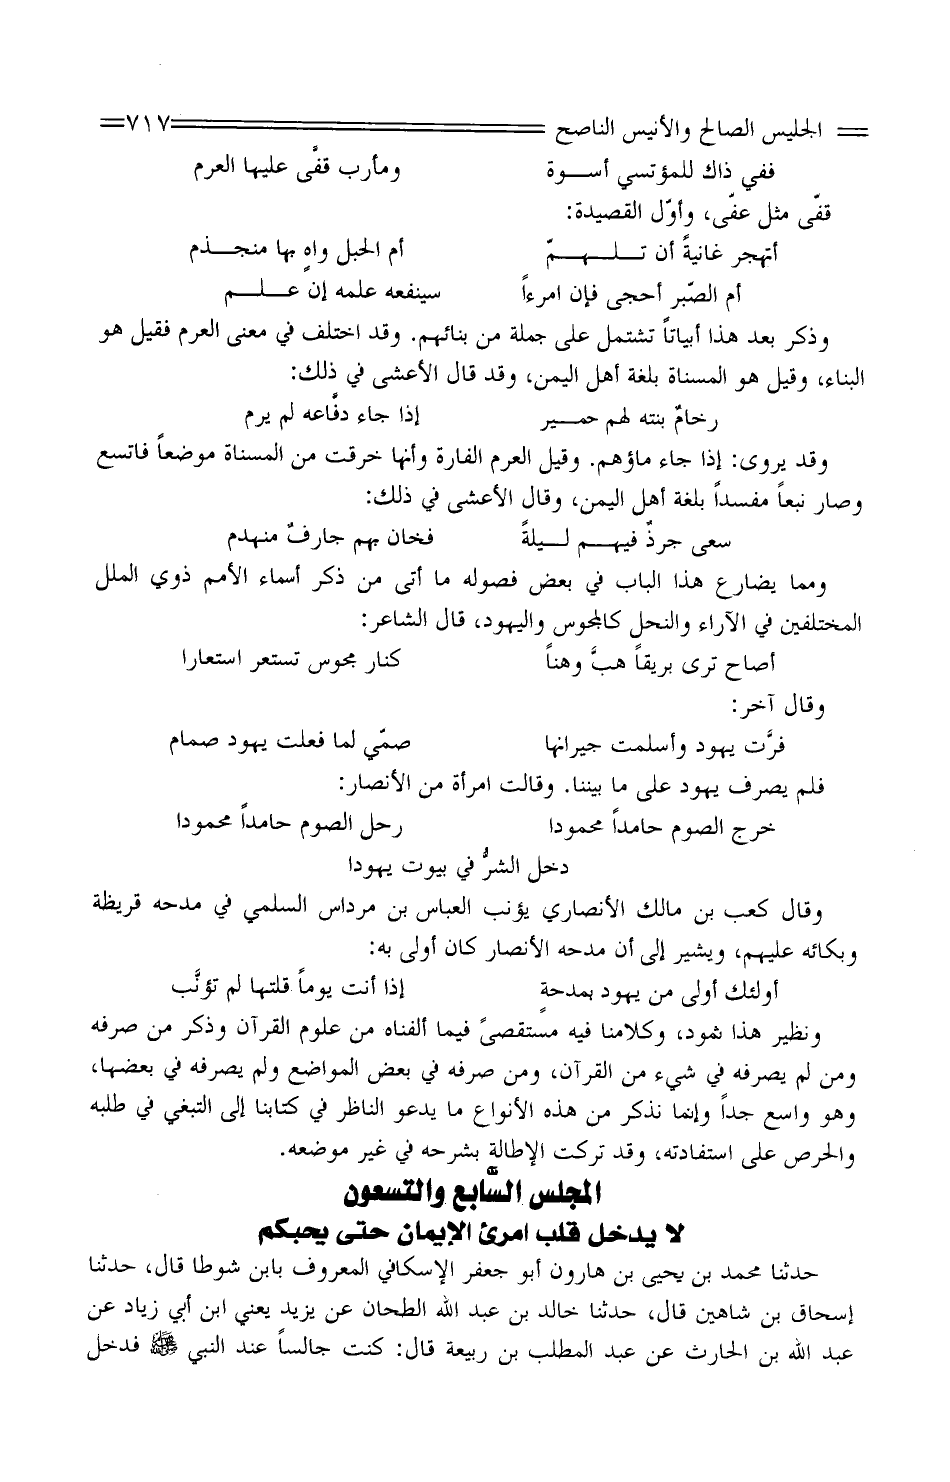 الجليس الصالح والأنيس الناصح ٧١٧
ففي ذاك للمؤتسي أســـوة ومأرب قفَّى عليها العرم
قفّى مثل عفّى، وأوّل القصيدة:
أتهجر غانيةً أن تـــلـــهـــمّ أم الحبل واهٍ بها منجـــذم
أم الصّبر أحجى فإن امرءاً سينفعه علمه إن عـــلـــم
وذكر بعد هذا أبياتاً تشتمل على جملة من بنائهم. وقد اختلف في معنى العرم فقيل هو
البناء، وقيل هو المسناة بلغة أهل اليمن، وقد قال الأعشى في ذلك:
رخامٌ بنته لهم حمـــير إذا جاء دفَّاعه لم يرم
وقد يروى: إذا جاء ماؤهم. وقيل العرم الفارة وأنها خرقت من المسناة موضعاً فاتسع
وصار نبعاً مفسداً بلغة أهل اليمن، وقال الأعشى في ذلك:
سعى جرذٌ فيهـــم لـــيلةً فخان بهم جارفٌ منهدم
ومما يضارع هذا الباب في بعض فصوله ما أتى من ذكر أسماء الأمم ذوي الملل
المختلفين في الآراء والنحل كالمجوس واليهود، قال الشاعر:
أصاح ترى بريقاً هبَّ وهناً كنار مجوس تستعر استعارا
وقال آخر:
فرَّت يهود وأسلمت جيرانها صمّي لما فعلت يهود صمام
فلم يصرف يهود على ما بيننا. وقالت امرأة من الأنصار:
خرج الصوم حامداً محمودا رحل الصوم حامداً محمودا
دخل الشرُّ في بيوت يهودا
وقال كعب بن مالك الأنصاري يؤنب العباس بن مرداس السلمي في مدحه قريظة
وبكائه عليهم، ويشير إلى أن مدحه الأنصار كان أولى به:
أولئك أولى من يهود بمدحةٍ إذا أنت يوماً قلتها لم تؤنَّب
ونظير هذا ثمود، وكلامنا فيه مستقصىً فيما ألفناه من علوم القرآن وذكر من صرفه
ومن لم يصرفه في شيء من القرآن، ومن صرفه في بعض المواضع ولم يصرفه في بعضها،
وهو واسع جداً وإنما نذكر من هذه الأنواع ما يدعو الناظر في كتابنا إلى التبغي في طلبه
والحرص على استفادته، وقد تركت الإطالة بشرحه في غير موضعه.
المجلس السَّابع والتسعون
لا يدخل قلب امرئ الإيمان حتى يحبكم
حدثنا محمد بن يحيى بن هارون أبو جعفر الإسكافي المعروف بابن شوطا قال، حدثنا
إسحاق بن شاهين قال، حدثنا خالد بن عبد الله الطحان عن يزيد يعني ابن أبي زياد عن
عبد الله بن الحارث عن عبد المطلب بن ربيعة قال: كنت جالساً عند النبي ﷺ فدخل